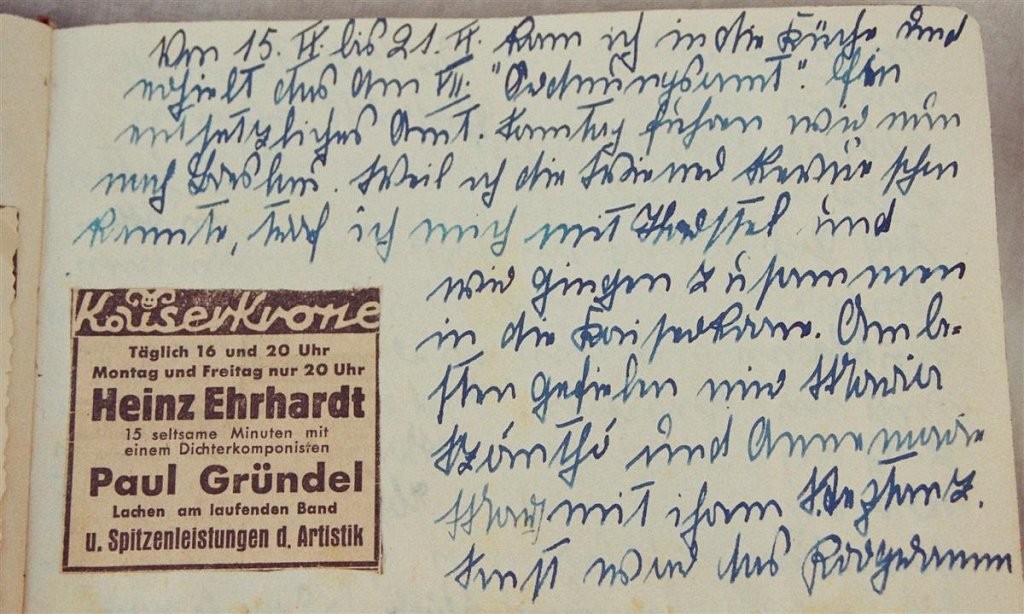 Von 15. bis 21. kam ich in die Küche und
erhielt das Am VII: "Ordnungsamt". Ein
entsetzliches Amt. Samtag fuhren wir nun
nach Breslau. Weil ich die Wiener Revue schon
kannte, traf ich mich mit und
wir gingen zusammen
in die Kaiserkrone. Am be-
sten gefielen mir Maria
Szánthó und Annemarie
mit ihrem Steptanz.
Sonst war das Programm
Kaiserkrone
Täglich 16 und 20 Uhr
Montag und Freitag nur 20 Uhr
Heinz Ehrhardt
15 seltsame Minuten mit
einem Dichterkomponisten
Paul Gründel
Lachen am laufenden Band
u. Spitzenleistungen d. Artistik